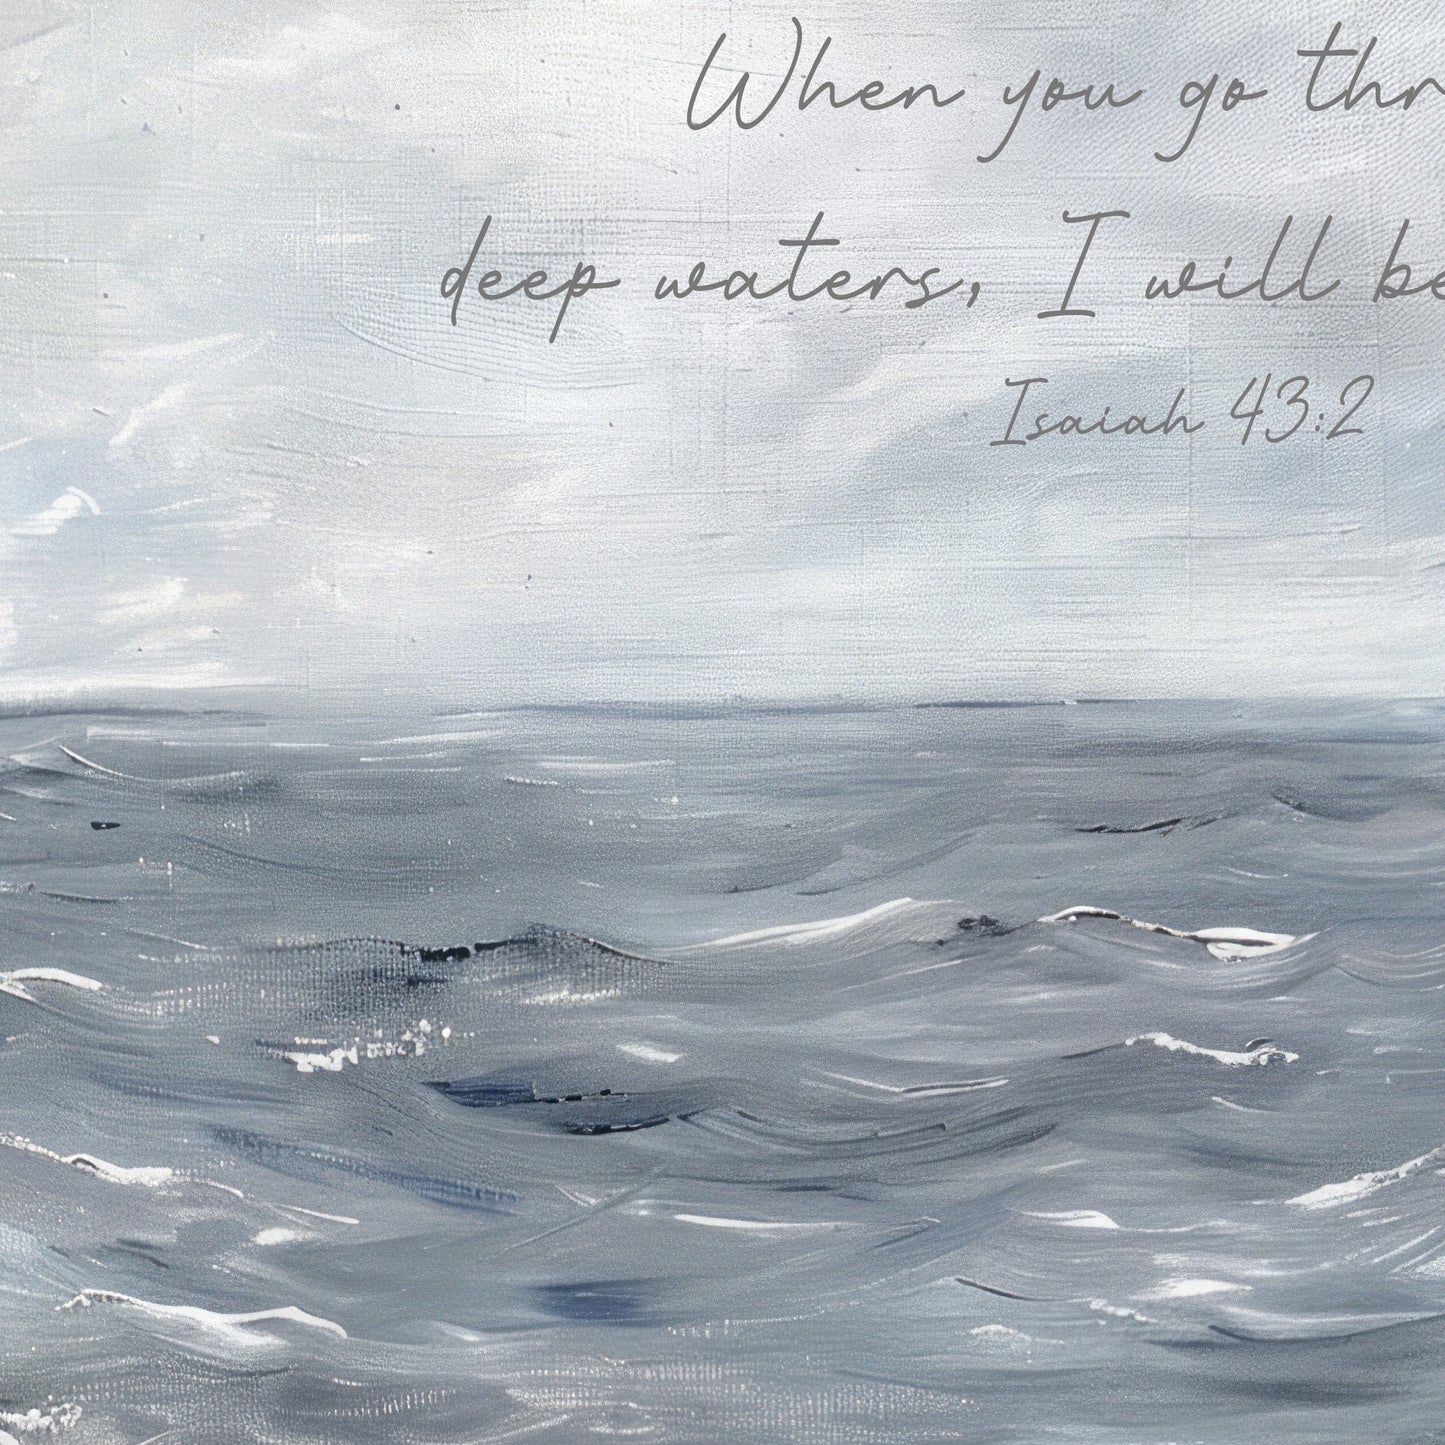 When you go thr
deep waters, I will be
Isaiah 43:2